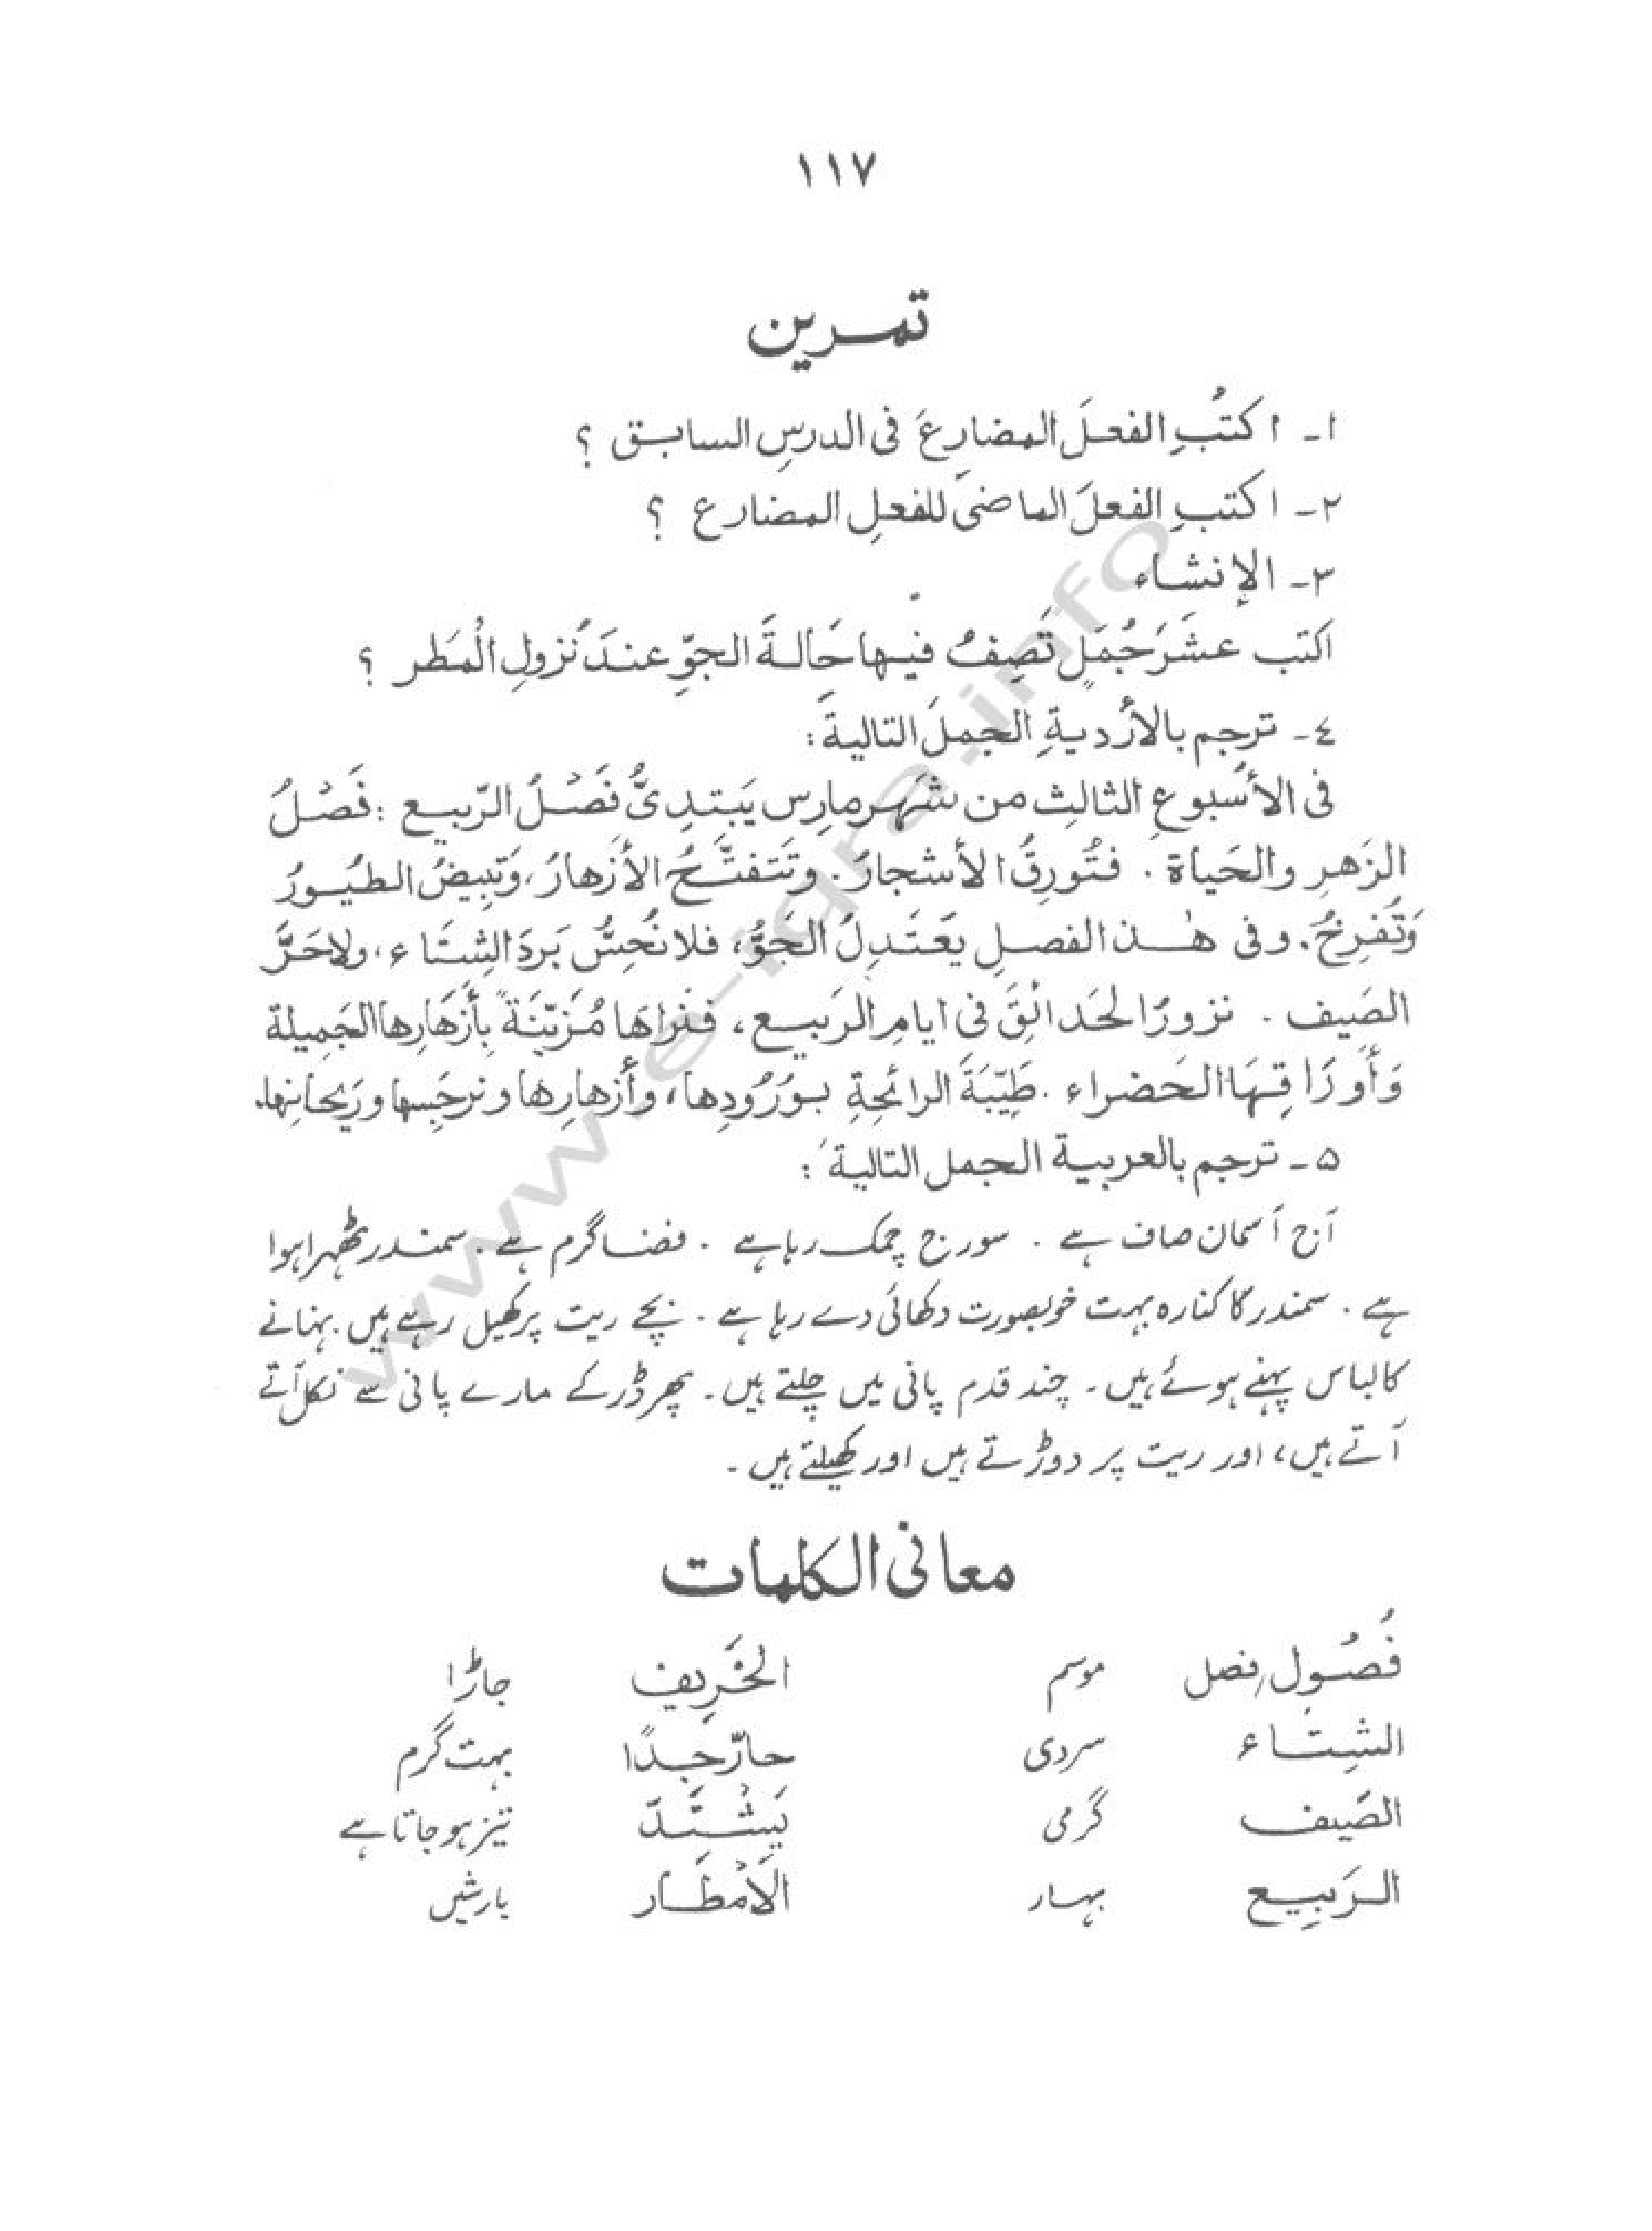 ١١٧
تمرين
١ـ اكتُبِ الفعلَ المضارِعَ فى الدرسِ السابق ؟
٢ـ اكتبِ الفعلَ الماضىَ للفعلِ المضارع ؟
٣ـ الإنشاء
اكتب عشَرَ جُمَلٍ تَصِفُ فيها حَالةَ الجوِّ عندَ نُزولِ الْمَطر ؟
٤ـ ترجِم بالأُرديةِ الجملَ التاليةَ :
فى الأسبوعِ الثالثِ من شَهرِ مارِس يَبتدِئُ فَصْلُ الرّبيع : فَصْلُ
الزَهرِ والحَياة . فتُورِقُ الأشجارُ . وتَتفتَّحُ الأزهارُ ، وَتبِيضُ الطيُورُ
وَتُفرِخُ . وفى هٰذا الفصلِ يَعتَدِلُ الجَوُّ ، فلا نُحِسُّ بَردَ الشِتَاء ، ولا حَرَّ
الصَيف . نزورُ الحَدائقَ فى ايامِ الرَبيع ، فنراهَا مُزَيّنَةً بِأَزهَارِها الجَمِيلة
وَأَورَاقِهَا الخَضراء . طَيّبَةَ الرائحَةِ بوُرُودِها ، وأَزهارِها ونرجَسِها ورَيحانِها .
۵ـ ترجم بالعربية الجمل التالية :
آج آسمان صاف ہے . سورج چمک رہا ہے . فضا گرم ہے . سمندر ٹھہرا ہوا
ہے . سمندر کا کنارہ بہت خوبصورت دکھائی دے رہا ہے . بچے ریت پر کھیل رہے ہیں . نہانے
کا لباس پہنے ہوئے ہیں ۔ چند قدم پانی میں چلتے ہیں ۔ پھر ڈر کے مارے پانی سے نکل آتے
آتے ہیں ، اور ریت پر دوڑتے ہیں اور کھیلتے ہیں ۔
معانى الكلمات
فُصُول / فصل موسم الخَرِيف جاڑا
الشِتاء سردی حارّ جِدًا بہت گرم
الصَيف گرمی يَشْتَدّ تیز ہو جاتا ہے
الرَبِيع بہار الأَمْطَار بارشیں
www.e-iqra.info